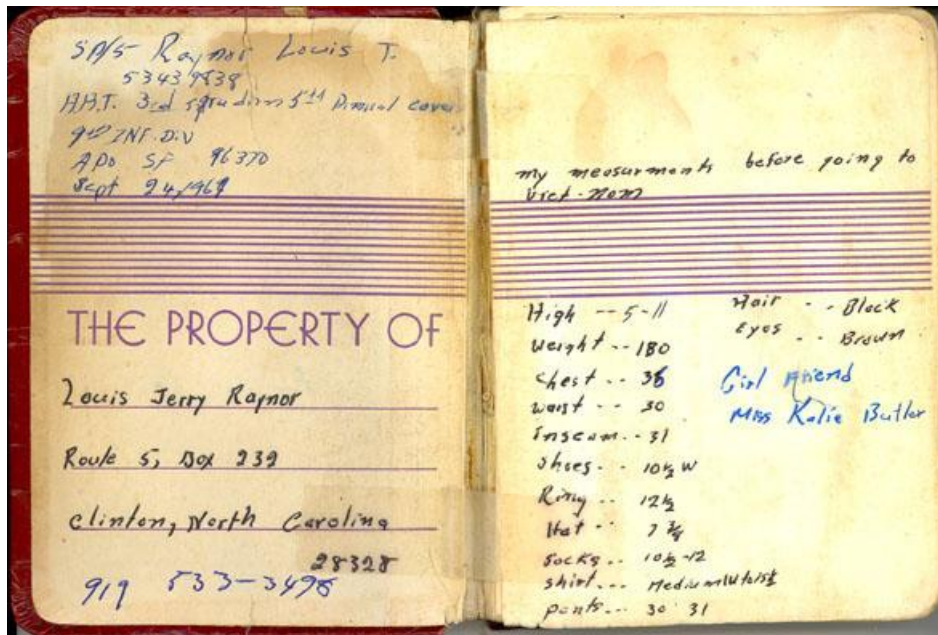 SP/5 Raynor Louis T.
53439838
H.H.T. 3rd 5th
9th INF. DIV
APO SF 96370
Sept 24, 1967
THE PROPERTY OF
Louis Jerry Raynor
Route 5, Box 232
Clinton, North Carolina
28328
919 533-3498
my measurments before going to
Viet-nam
High -- 5-11
weight -- 180
chest -- 36
waist -- 30
Inseam -- 31
Shoes -- 10½ W
Ring -- 12½
Hat -- 7 3/8
Socks -- 10½-12
shirt --- Medium
pants --- 30 31
Hair - - Black
Eyes - - Brown
Girl Friend
Miss Katie Butler